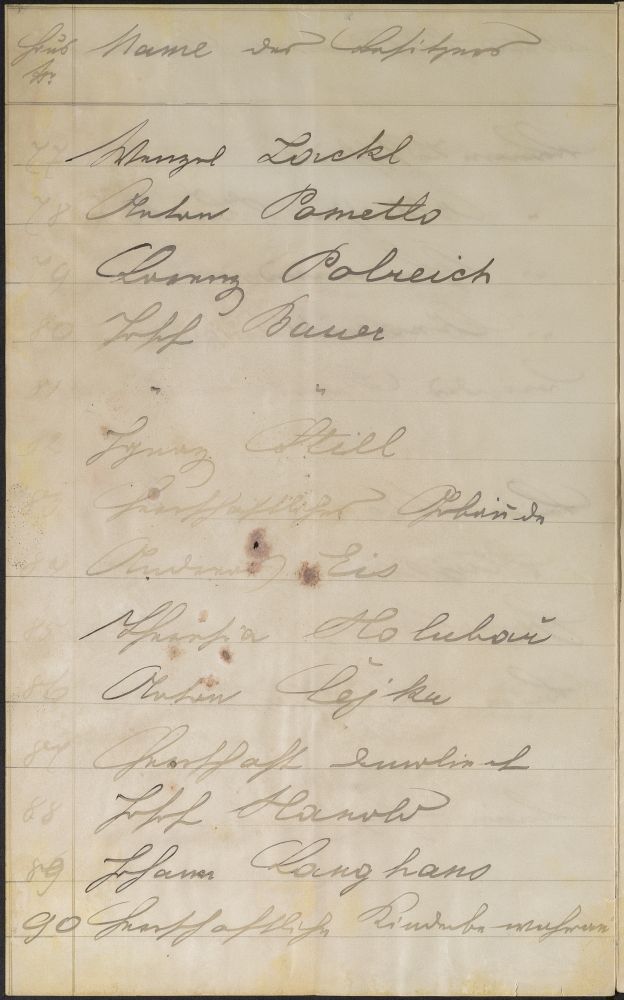 Haus Name des Besitzers
Nr
77 Wenzel Lackl
78 Anton Pametto
79 Lorenz Polreich
80 Josef Bauer
81 " "
82 Ignaz Still
83 Herrschaftliches Gebäude
84 Andreas Eis
85 Theresia Holubař
86 Anton Čejka
87 Herrschaft
88 Josef Hanold
89 Johann Langhans
90 Herrschaftliche